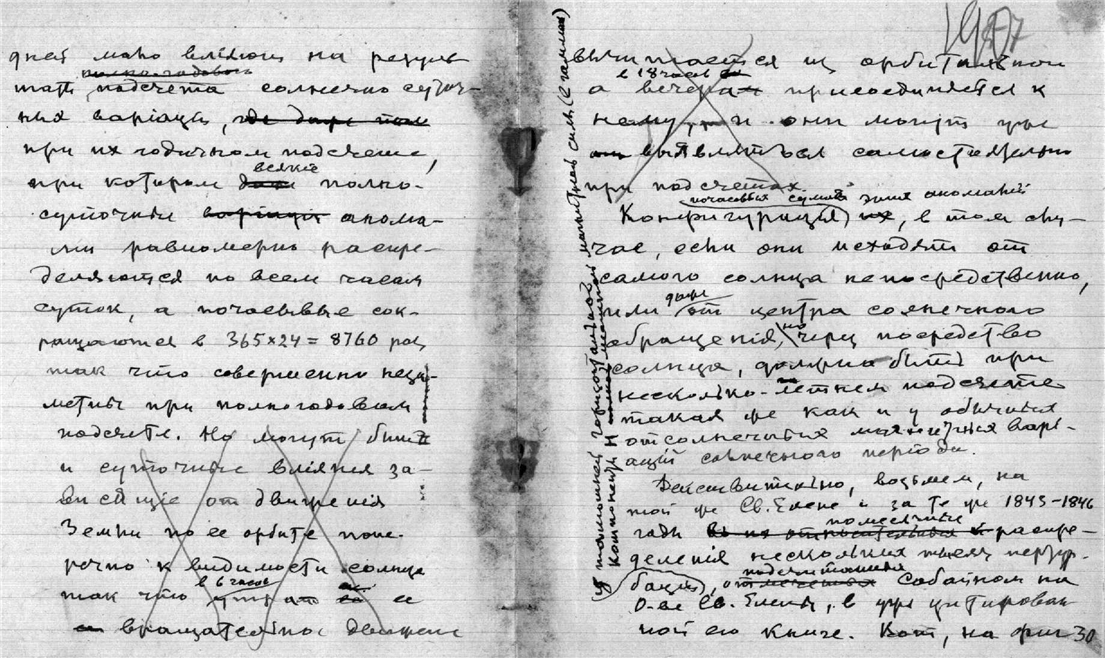 дней мало вліяют на резуль
полно-годового
тат, подсчета солнечно-суточ-
ных варіацій, где даже пол
при их годичном подсчете,
всякіе
при котором полно-
суточныя варіаціи анома-
ліи равномерно распре-
деляются по всем часам
суток, а почасовые сок-
ращаются в 365×24 = 8760 раз,
так что совершенно неза-
метны при полногодовом
подсчете. Но могут быть
и суточные вліянія за-
висящіе от движенія
Земли по ее орбите попе-
речно к видимости солнца
в 6 часов
так что утрат ее
вращательное движение
1977
вычитается из орбитальной
в 18 часов
а вечера присоединяется к
нему, и они могут уже
выявляться самостоятельно
при подсчетах.
почасовых сумов этих аномалий
Конфигурация их, в том слу-
чае, если они исходят от
самого солнца непосредственно,
даже
или от центра солнечного
но
обращенія, через посредство
солнца, должна быть при
несколько-летнем подсчете
такая же как и у обычных
отсолнечных магнитных варі-
ацій солнечного періода.
Действительно, возьмем, на
той же Св. Елене и за те же 1843-1846
помесячные
годы распре-
деленія нескольких тысяч пертур-
подсчитанныя
бацій, отмеченных Сабайном на
О-ве Св. Елены, в уже цитирован
ной его книге. Вот, на фиг 30
(у тогдашней горизонтальной магнитной силы (в гаммах)
Компонента H